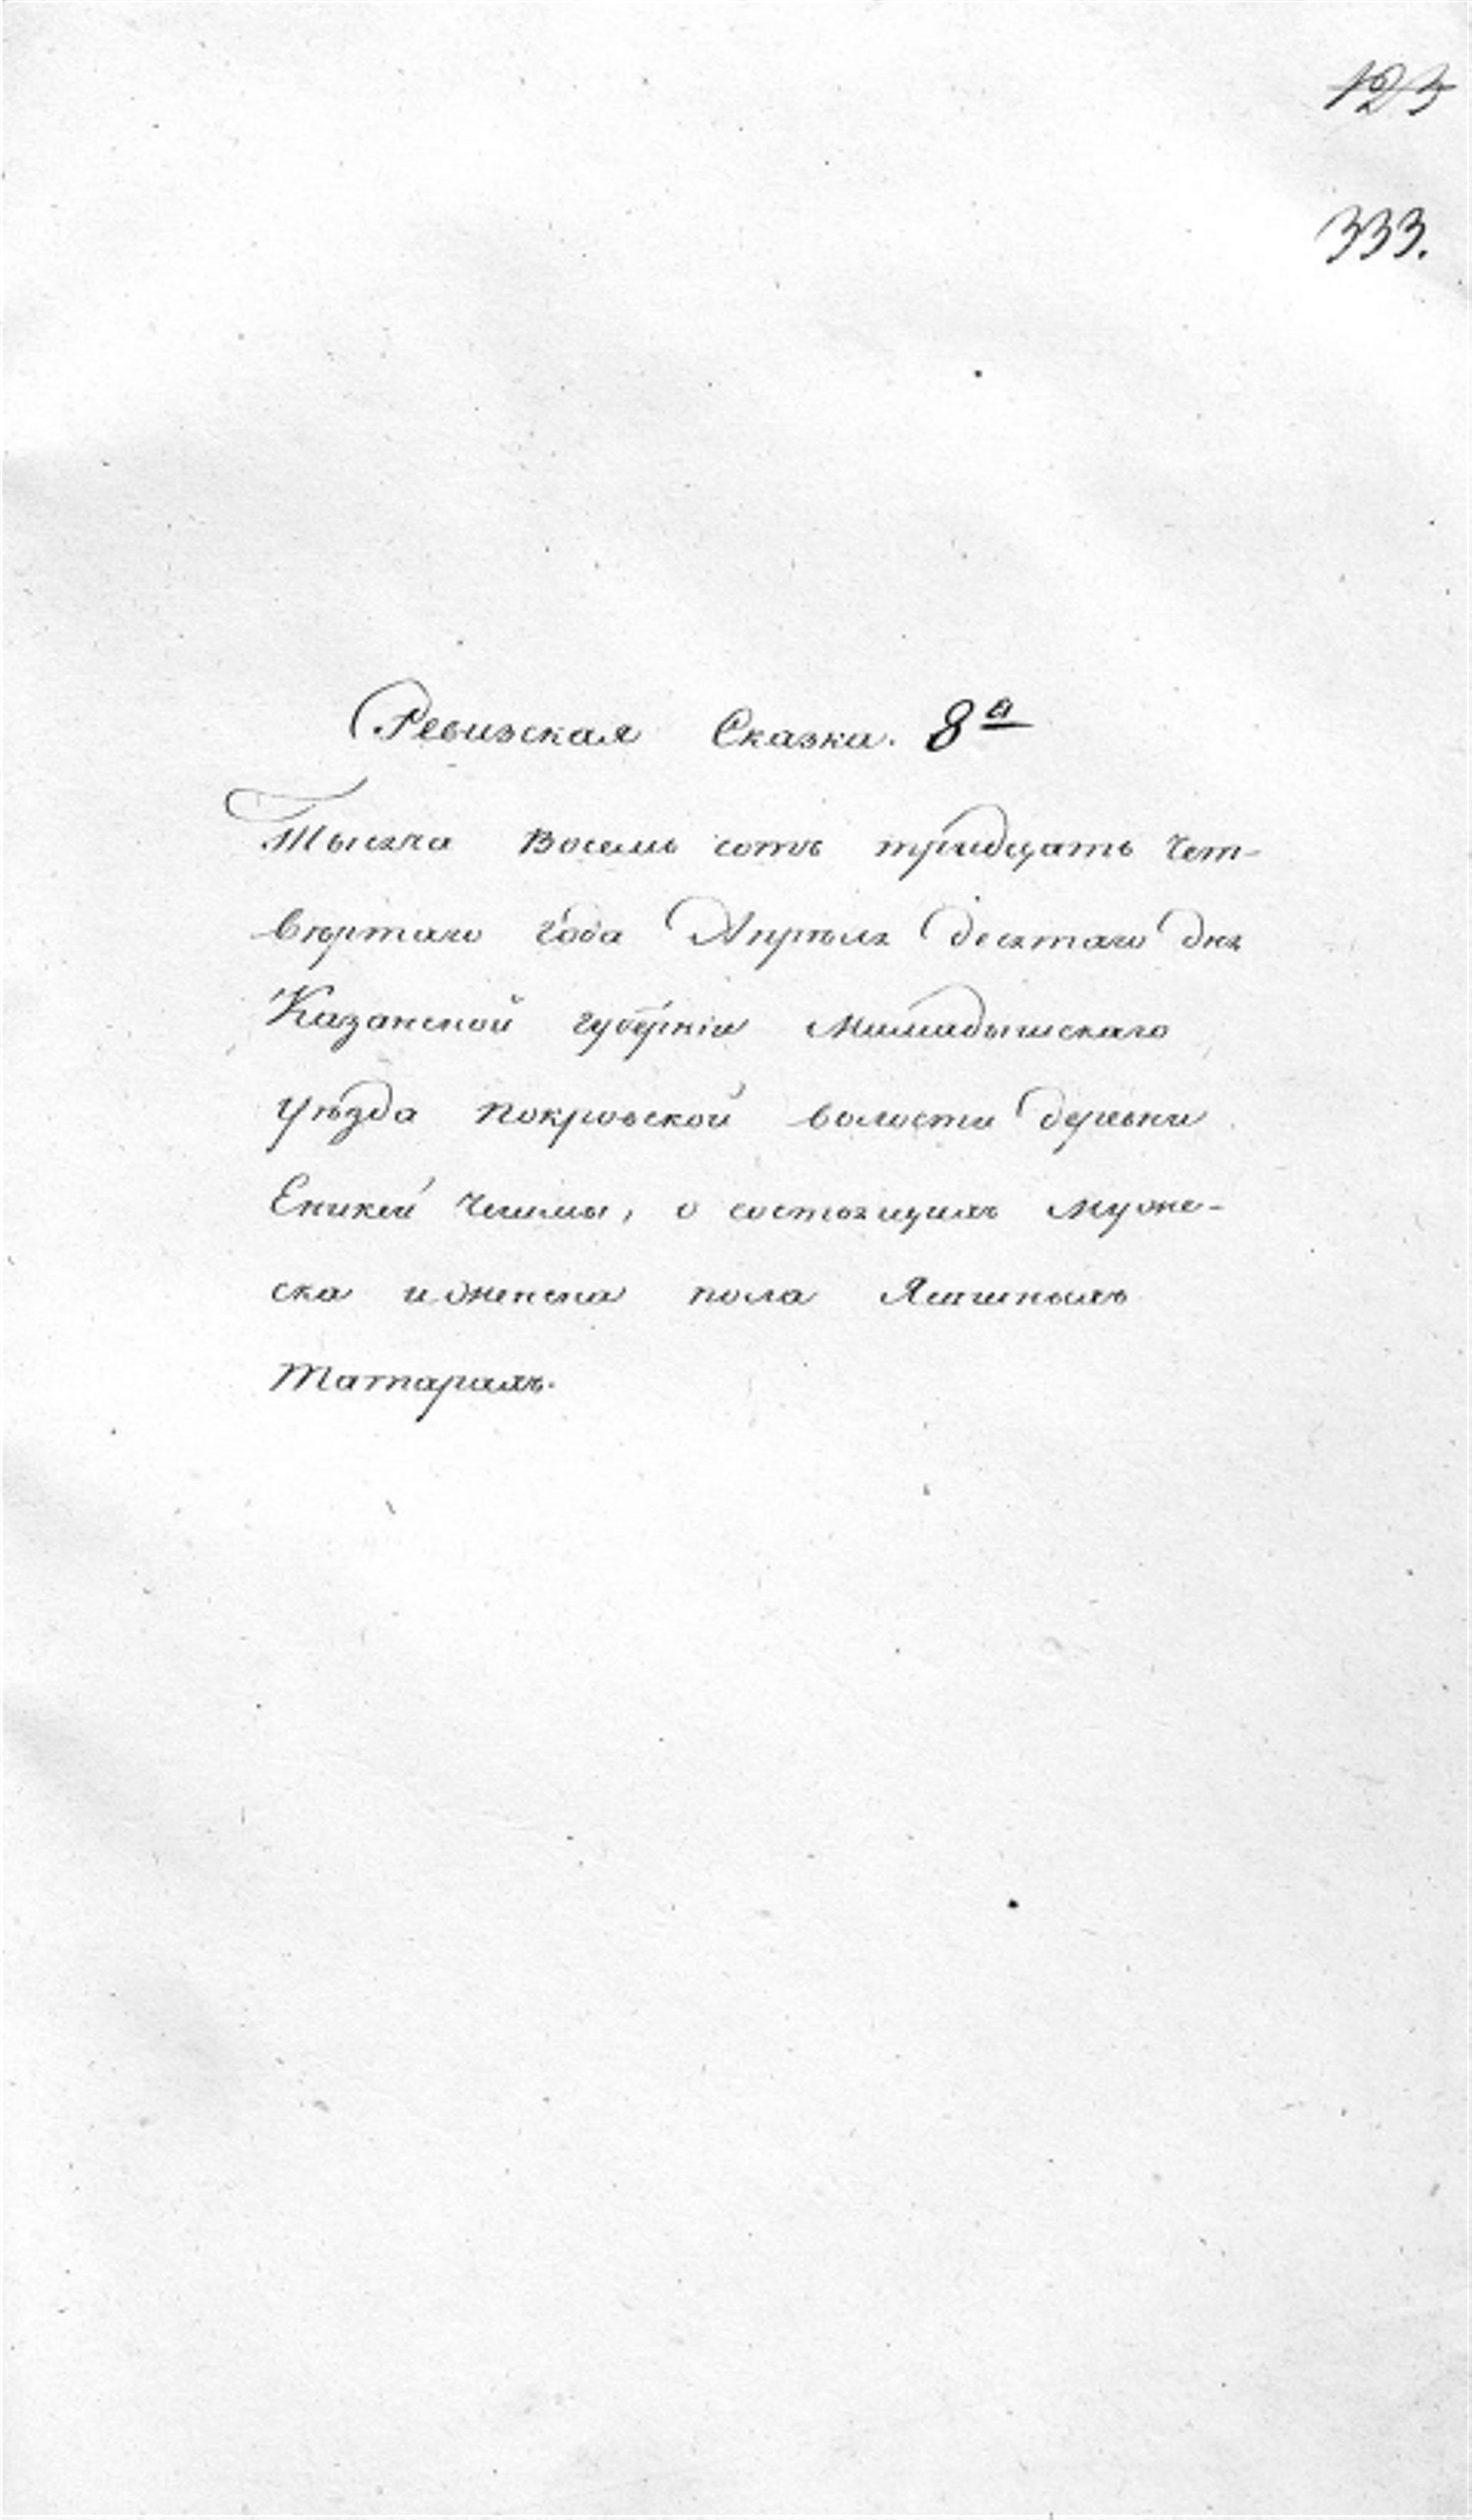 123
333.
Ревизская Сказка. 8а
Тысяча Восемь сотъ тридцать Чет-
вертаго года Апреля десятаго дня
Казанской губерніи Мамадышскаго
уѣзда Покровской волости деревни
Еникей Чишмы, о состоящихъ муже-
ска и женска пола Ясашныхъ
Татарахъ.